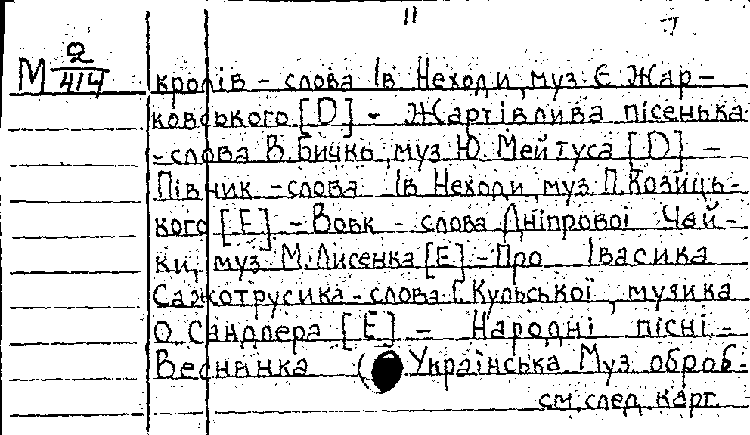 11
М 2/414
кролів - слова Ів Неходи, муз Є Жар-
ковського [D] - Жартівлива пісенька
- слова В. Бичко, муз Ю. Мейтуса [D] -
Півник - слова Ів Неходи, муз П. Козиць-
кого [E] - Вовк - слова Дніпрової Чай-
ки, муз М. Лисенка [E] - Про Івасика
Сажотрусика - слова Г. Кульської, музика
О Сандлера [E] - Народні пісні -
Веснянка ( Українська Муз оброб-
см. след. карт.